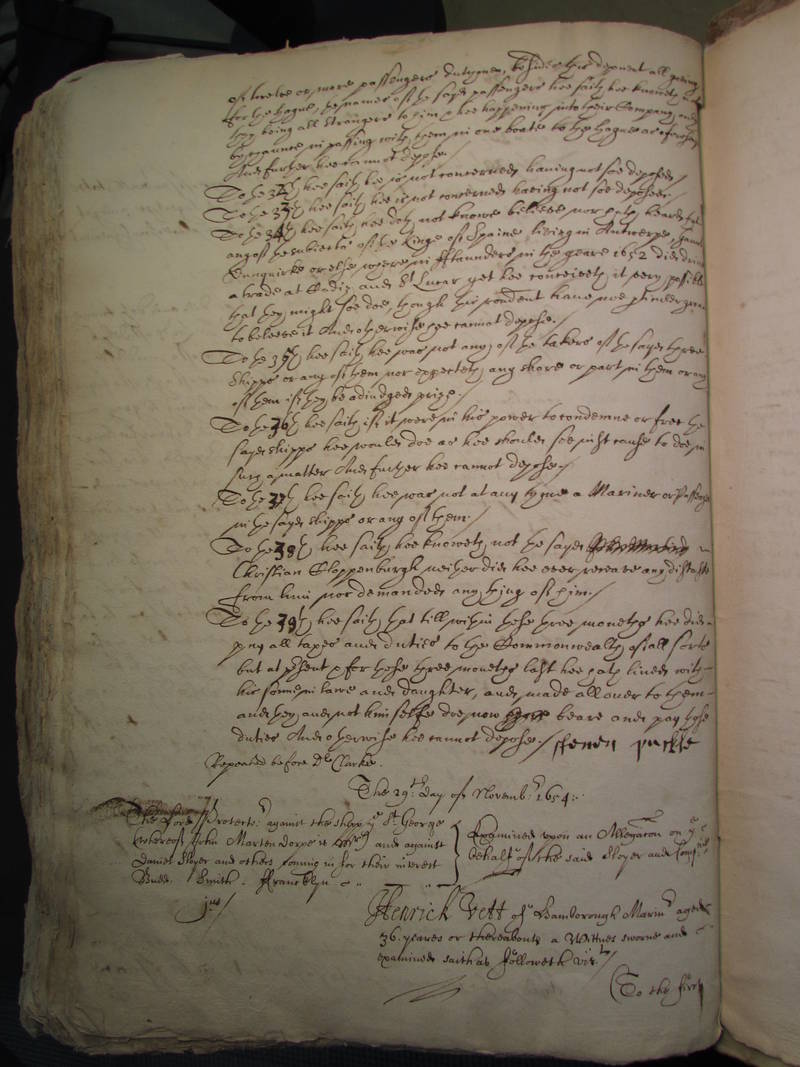 of twelve or more passengers dutchmen, besides this deponent all going
for the hague, the names of the sayd passengers hee saith hee knoweth not
they being all strangers to him & hee happening into their Company only
by chaunce in passing with them in one boate to the hague as aforesayd
And further hee cannot depose./
To the 32th hee saith hee is not concerned having not soe deposed./
To the 33th hee saith hee is not concerned haveing not soe deposed./
To the 34th hee saith hee doth not knowe beleeve nor hath heard that
any of the subiects of the Kinge of Spaine liveing in Antwerpe,
Dunquirke or else where in fflaunders in the yeare 1652 did drive
a trade at Cadiz and St Lucar yet hee conceiveth it very possible
that they might soe doe, though this rendent have noe
to beleeve it And otherwise hee cannot depose./
To the 35th hee saith hee was not any of the takers of the sayd three
shipps or any of them nor expecteth any share or part in them or any
of them if they be adiudged prize./
To the 36th hee saith if it were in his power to condemne or free the
sayd shipps hee would doe as hee should see iust cause to doe in
such a matter And further hee cannot depose./
To the 37th hee saith hee was not at any tyme a Mariner or Passenger
in the sayd shipps or any of them./
To the 38th hee saith hee knoweth not the sayd
Christian Cloppenburgh neither did hee ever receave any
from him nor demanded any thing of him./
To the 39th hee saith that till within these three moneths hee did
pay all taxes and duties to the Commonwealth of all sorts
but at present & for these three moneths last hee hath lived with
his sonne in lawe and daughter, and made all over to them
and they and not him selfe doe now beare and pay those
duties And otherwise hee cannot depose./
Repeated before Dr Clarke.
The 29th day of Novemb: 1654:.
The Lord Protector against the shipp ye St George
whereof John Marten Dorpe is and against
Daniel Sloyer and others coming in for their interest
Budd. Smith. Francklyn
Examined upon an Allegacon on ye
behalf of the said Sloyer and
jus/
Henrick Vett of Hamborough Marinr aged
36. yeares or thereabouts a Witnes sworne and
examined saith as followeth vizt./
(To the first